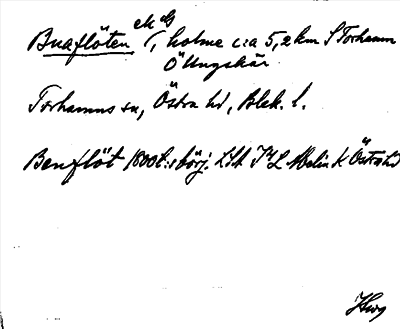 Buaflöten ek G
(, holme c:a 5,2 km S Torhamn
Ö Ungskär
Torhamns sn, Östra hd, Blek. l.
Benflöt 1800t:s börj. LSA J L Melin K Östra hd